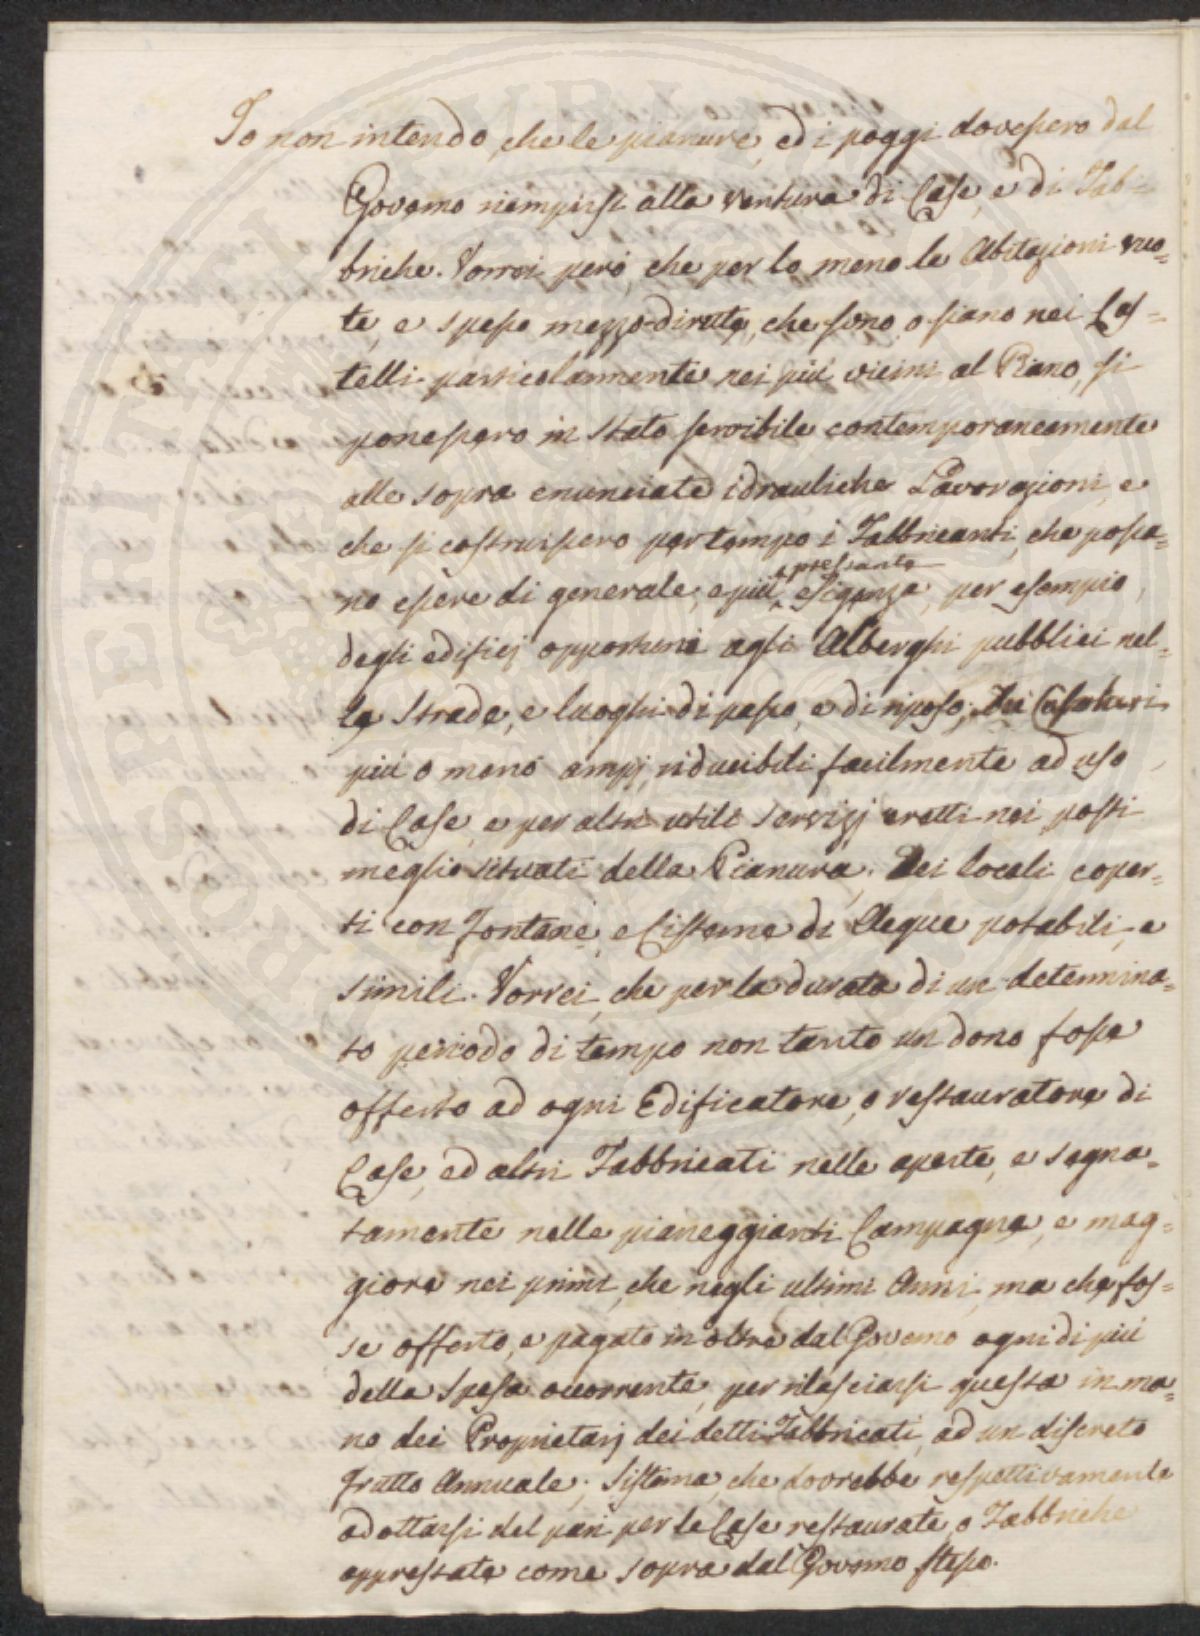 Io non intendo, che le pianure, ed i poggi dovessero dal
Governo riempirsi alla ventura di Case, e di Fab-
briche. Vorrei però, che per lo meno le Abitazioni vuo=
te, e spesso mezzo-dirute, che sono, o siano nei Cas=
telli particolarmente nei più vicini al Piano, si
ponessero in stato servibile contemporaneamente
alle sopra enunciate idrauliche Lavorazioni, e
che si costruissero per tempo i Fabbricanti, che possa=
no essere di generale, e più pressante esigenza, per esempio,
degli edificj opportuni agli Alberghi pubblici nel=
le Strade, e luoghi di passo, e di riposo; Dei Casolari
più o meno ampj, riducibili facilmente ad uso
di Case, e per altri utili servizj eretti nei posti
meglio situati della Pianura; Dei locali coper=
ti con Fontane, e Cisterne di Acque potabili, e
simili. Vorrei, che per la durata di un determina=
to periodo di tempo non tanto un dono fosse
offerto ad ogni Edificatore, o restauratore di
Case, ed altri Fabbricati nelle aperte, e segna=
tamente nelle pianeggianti Campagne, e mag=
giore nei primi, che negli ultimi Anni, ma che fos=
se offerto, e pagato in oltre dal Governo ogni di più
della Spesa occorrente, per rilasciarsi questa in ma=
no dei Proprietarj dei detti Fabbricati, ad un discreto
frutto Annuale; Sistema, che dovrebbe respettivamente
adottarsi del pari per le Case restaurate, o Fabbriche
apprestate come sopra dal Governo stesso.
PROSPERITATI PUBLICAE